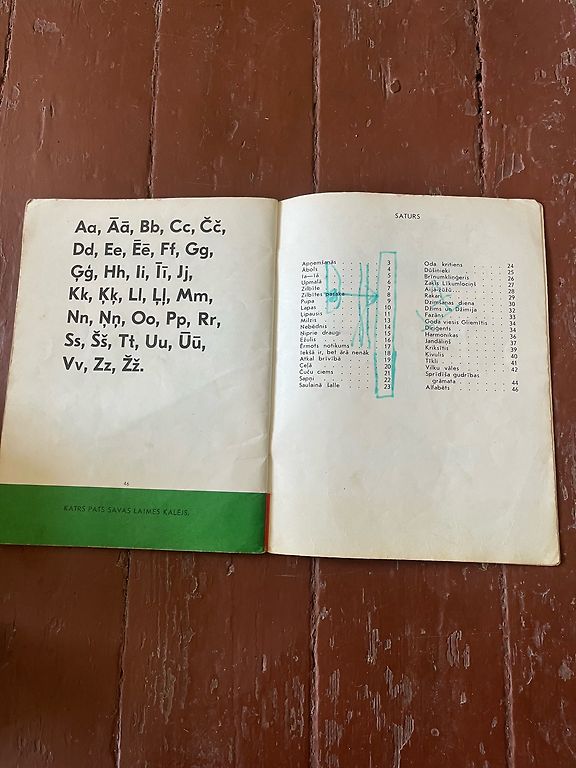 Aa, Āā, Bb, Cc, Čč,
Dd, Ee, Ēē, Ff, Gg,
Ģģ, Hh, Ii, Īī, Jj,
Kk, Ķķ, Ll, Ļļ, Mm,
Nn, Ņņ, Oo, Pp, Rr,
Ss, Šš, Tt, Uu, Ūū,
Vv, Zz, Žž.
46
KATRS PATS SAVAS LAIMES KALĒJS.
SATURS
Apņemšanās 3
Ābols 4
Ia—iā 5
Upmalā 6
Zilbīte 7
Zilbītes pasaka 8
Pupa 9
Lapas 10
Lipausis 11
Milzis 13
Nebēdnis 14
Ņiprie draugi 15
Ežulis 16
Ērmots notikums 17
Iekšā ir, bet ārā nenāk 18
Atkal brīvībā 19
Ceļā 20
Čuču ciems 21
Sapņi 22
Saulainā šalle 23
Oda kritiens 24
Dūšinieki 25
Brīnumkliņģeris 26
Zaķis Līkumlociņš 27
Aijā-žūžū 28
Rakari 29
Dzimšanas diena 30
Džims un Džimija 32
Fazāns 33
Goda viesis Gliemītis 34
Diriģents 35
Harmonikas 36
Jandāliņš 37
Kriksītis 39
Ķivulis 40
Tīkli 41
Vilku vāles 42
Sprīdīša gudrības
grāmata 44
Alfabēts 46